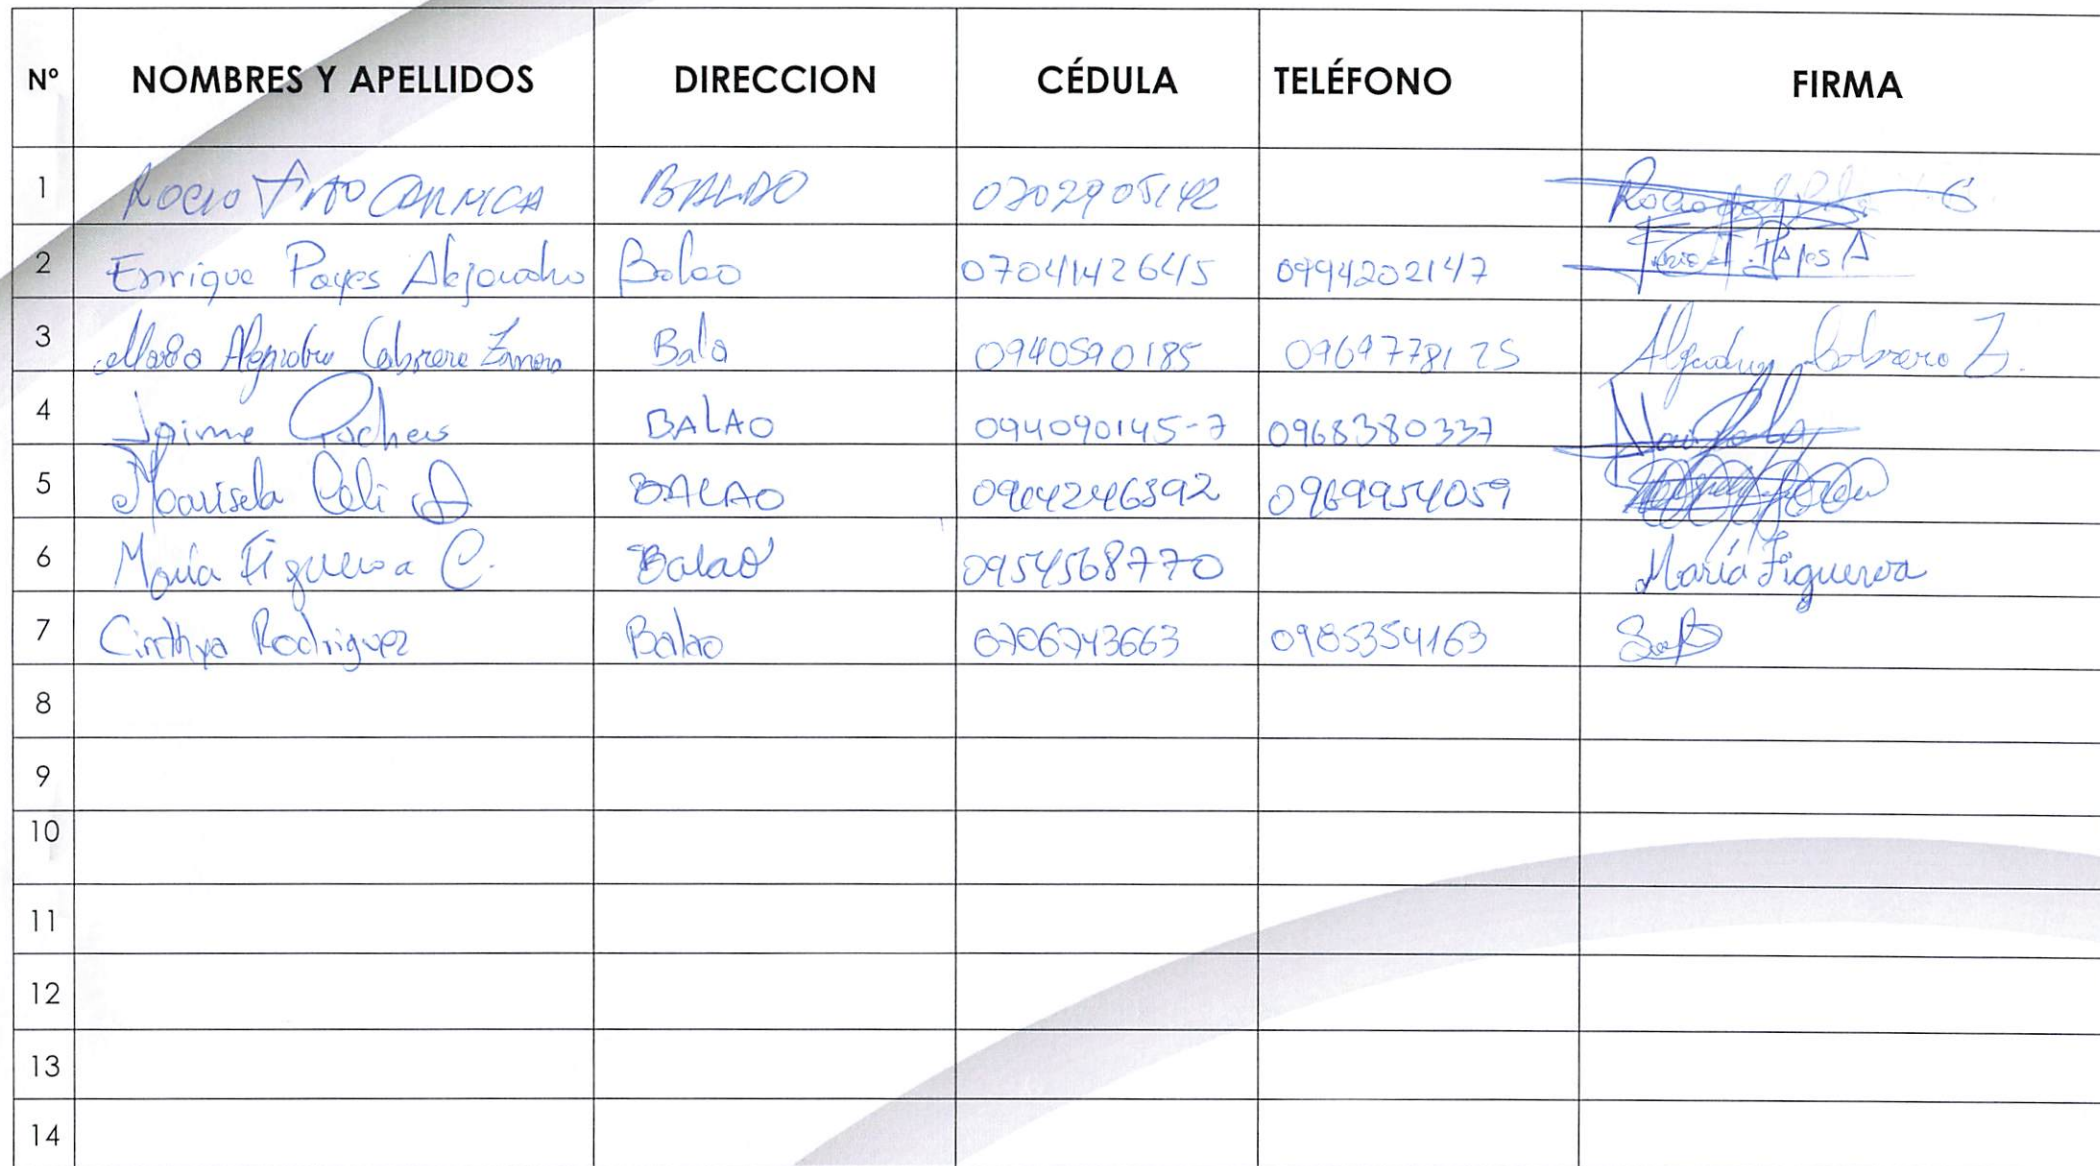 Nº NOMBRES Y APELLIDOS DIRECCION CÉDULA TELÉFONO FIRMA
1 ROCIO BALAO 0702905142
2 Enrique Payes Alejandro Balao 0704142645 0994202147 Payes A
3 Alejandra Cabrera Bala 0940590185 0969778125 Cabrera Z.
4 Jaime BALAO 094090145-7 0968380337
5 Marisela Celi BALAO 0969954059
6 María Figueroa C. Balao 0954568770 María Figueroa
7 Cinthya Rodriguez Balao 0706743663 0985354163
8
9
10
11
12
13
14